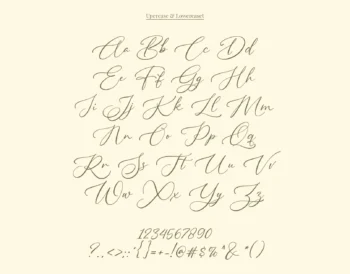 Upercase & Lowercase
Aa Bb Cc Dd
Ee Ff Gg Hh
Ii Jj Kk Ll Mm
Nn Oo Pp Qq
Rr Ss Tt Uu Vv
Ww Xx Yy Zz
1234567890
?.,<>:;"{}=+-!@#$%^&*()